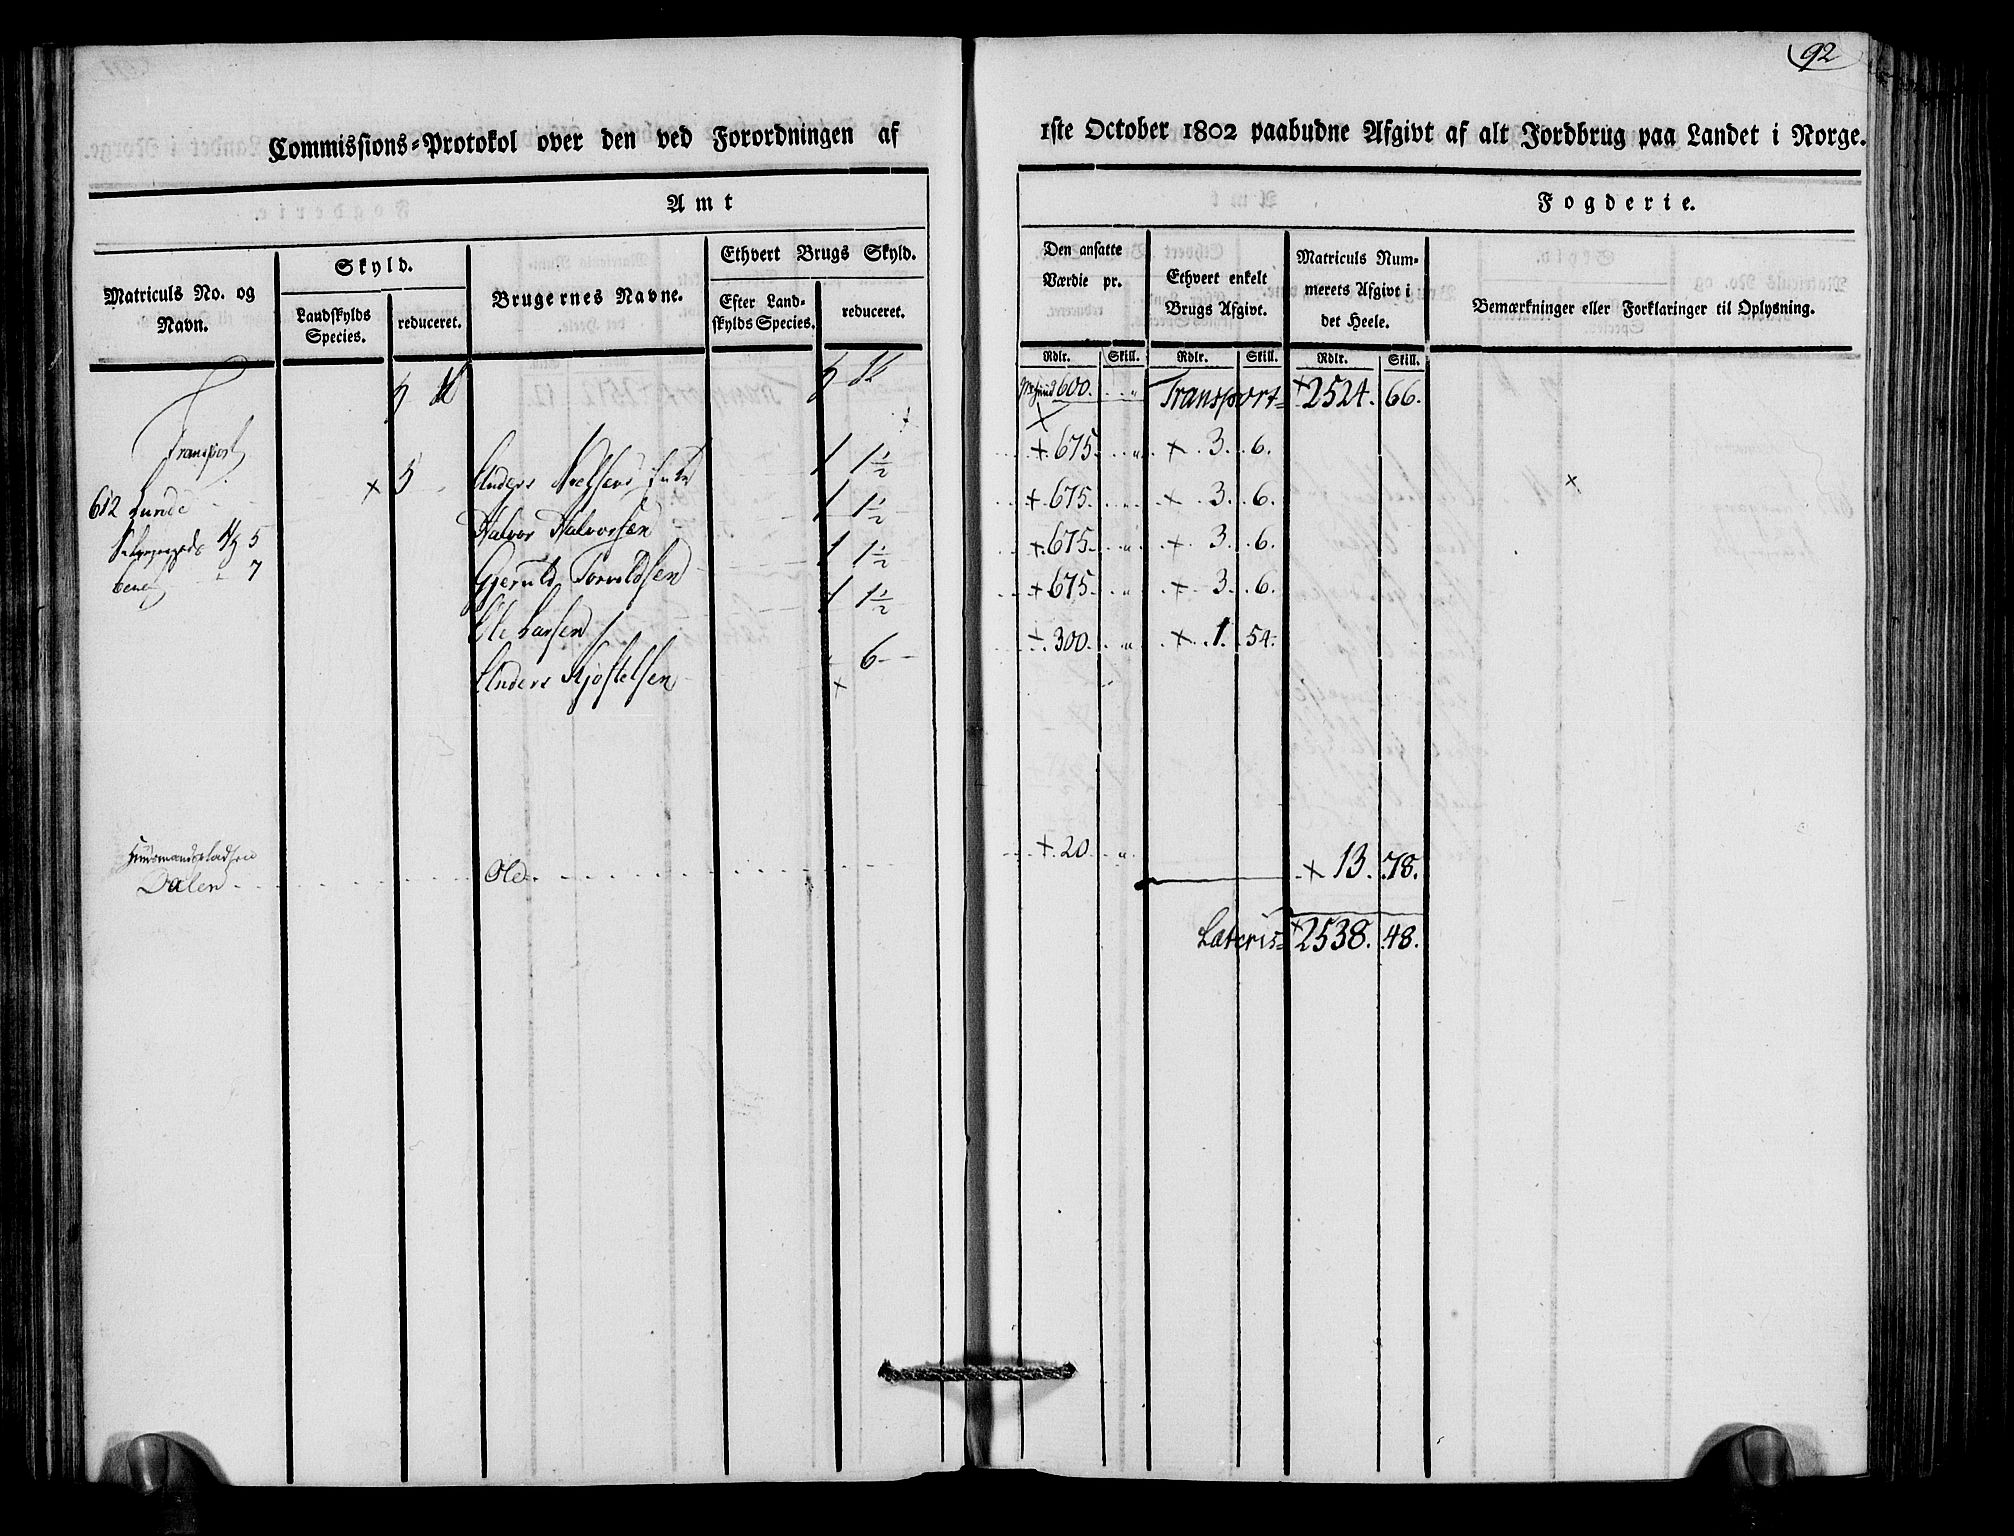 92
Commissions-Protokol over den ved Forordningen af
1ste October 1802 paabudne Afgivt af alt Jordbrug paa Landet i Norge.
Amt
Fogderie.
Matriculs No. og Navn.
Skyld.
Landskylds Species.
reduceret.
Brugernes Navne.
Ethvert Brugs Skyld.
Efter Landskylds Species.
reduceret.
Den ansatte Værdie pr.
Ethvert enkelt Brugs Afgivt.
Matriculs Nummerets Afgivt i det Heele.
Bemærkninger eller Forklaringer til Oplysning.
Rdlr. Skill. Rdlr. Skill. Rdlr. Skill.
Transport
600. " Transport 2524. 66.
612 Lunde 5 Anders 1 1½ 675. " 3. 6.
5 Halvor Halvorsen 1 1½ 675. " 3. 6.
7 Gjeruld Torvildsen 1 1½ 675. " 3. 6.
Ole Larsen 1 1½ 675. " 3. 6.
Anders Kjøstelsen 6 300. " 1. 54.
Huusmandspladsen
Dalen Ole 20 " 13. 78.
Lateris 2538. 48.